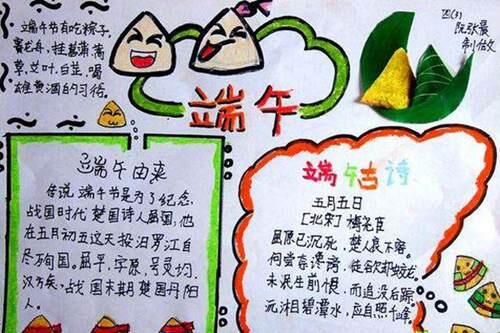 端午节有吃粽子,
赛龙舟,挂菖蒲蒲
草,艾叶,白芷,喝
雄黄酒的习俗.
端午
四(3)
阮张晨
制做
端午由来
传说端午节是为了纪念,
战国时代楚国诗人屈原,他
在五月初五这天投汨罗江自
尽殉国。屈平,字原,号灵均,
汉方矣,战国末期楚国丹阳
人.
端午古诗
五月五日
[北宋]梅尧臣
屈原已沉死,楚人衰不容。
何尝奈谗谤,徒欲却蛟龙。
未泯生前恨,而追没后踪。
沅湘碧潭水,应自照千峰